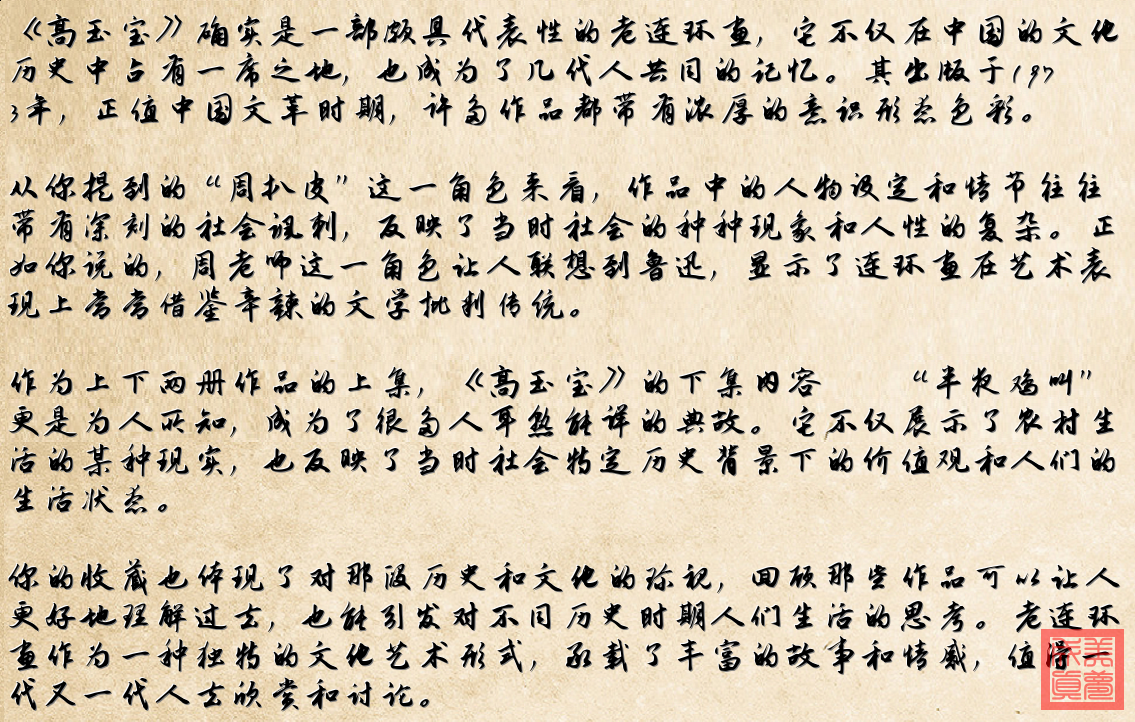 《高玉宝》确实是一部颇具代表性的老连环画，它不仅在中国的文化
历史中占有一席之地，也成为了几代人共同的记忆。其出版于197
3年，正值中国文革时期，许多作品都带有浓厚的意识形态色彩。
从你提到的“周扒皮”这一角色来看，作品中的人物设定和情节往往
带有深刻的社会讽刺，反映了当时社会的种种现象和人性的复杂。正
如你说的，周老师这一角色让人联想到鲁迅，显示了连环画在艺术表
现上常常借鉴辛辣的文学批判传统。
作为上下两册作品的上集，《高玉宝》的下集内容 “半夜鸡叫”
更是为人所知，成为了很多人耳熟能详的典故。它不仅展示了农村生
活的某种现实，也反映了当时社会特定历史背景下的价值观和人们的
生活状态。
你的收藏也体现了对那段历史和文化的珍视，回顾那些作品可以让人
更好地理解过去，也能引发对不同历史时期人们生活的思考。老连环
画作为一种独特的文化艺术形式，承载了丰富的故事和情感，值得一
代又一代人去欣赏和讨论。